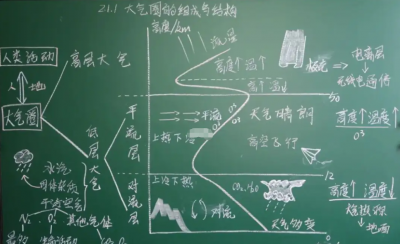 2.1 大气圈的组成与结构
高度/km
流星
人类活动
高层大气
高度↑温↑
极光
电离层
无线电通信
高↑温↓
50
人
地
大气圈
低层大气
平流层
平流
O3
大气晴朗
高度↑温度↑
O3
上热下冷
高空飞行
水汽
固体杂质
干洁空气
对流层
12
上冷下热
对流
CO2
H2O
高度↑温度↓
地面
N2
O2
其他气体
天气多变